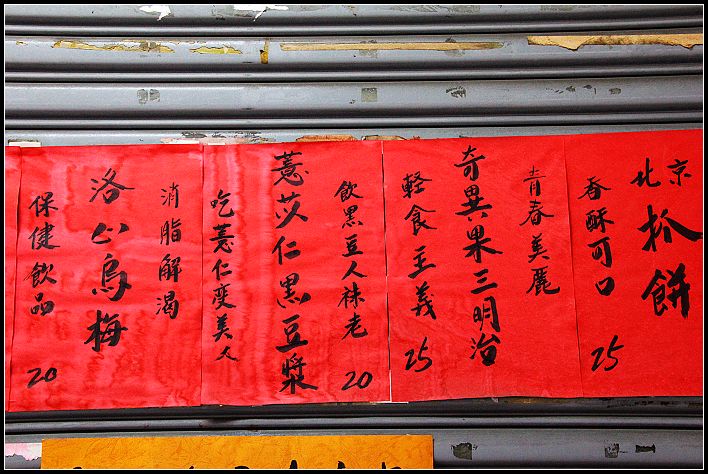 北京
抓餅
香酥可口 25
青春美麗
奇異果三明治
軽食主義 25
飲黑豆人袪老 20
薏苡仁黑豆漿
吃薏仁変美人
消脂解渴
洛 烏梅
保健飲品 20